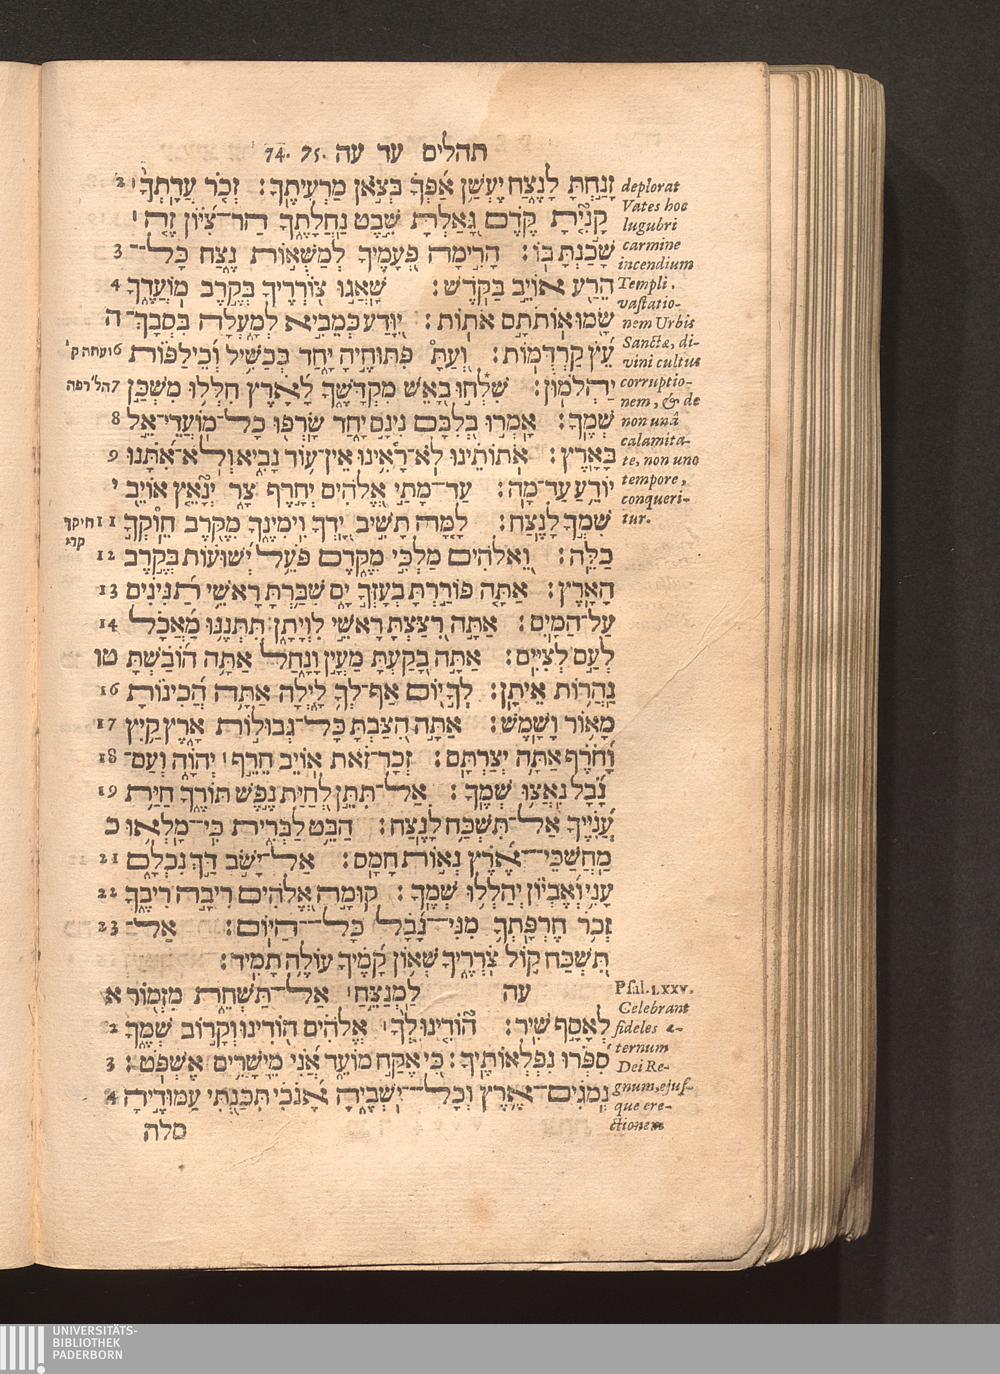 תהלים עד עה .74. 75
זָנַחְתָּ לָנֶצַח יֶעְשַׁן אַפְּךָ בְּצֹאן מַרְעִיתֶךָ׃ זְכֹר עֲדָתְךָ׀ 2
קָנִיתָ קֶּדֶם גָּאַלְתָּ שֵׁבֶט נַחֲלָתֶךָ הַר־צִיּוֹן זֶה׀
שָׁכַנְתָּ בּוֹ׃ הָרִימָה פְעָמֶיךָ לְמַשֻּׁאוֹת נֶצַח כָּל־ 3
הֵרַע אוֹיֵב בַּקֹּדֶשׁ׃ שָׁאֲגוּ צוֹרְרֶיךָ בְּקֶרֶב מוֹעֲדֶךָ 4
שָׂמוּ אוֹתֹתָם אֹתוֹת׃ יִוָּדַע כְּמֵבִיא לְמָעְלָה בִּסֲבָךְ־ ה
עֵץ קַרְדֻּמּוֹת׃ וְעַתָּ פִּתּוּחֶיהָ יָּחַד בְּכַשִּׁיל וְכֵילַפּוֹת 6 ועתה ק'
יַהֲלֹמוּן׃ שִׁלְחוּ בָאֵשׁ מִקְדָּשֶׁךָ לָאָרֶץ חִלְּלוּ מִשְׁכַּן 7
שְׁמֶךָ׃ אָמְרוּ בְלִבָּם נִינָם יָחַד שָׂרְפוּ כָל־מוֹעֲדֵי־אֵל 8
בָּאָרֶץ׃ אֹתוֹתֵינוּ לֹא־רָאִינוּ אֵין־עוֹד נָבִיא וְלֹא־אִתָּנוּ 9
יוֹדֵעַ עַד־מָה׃ עַד־מָתַי אֱלֹהִים יְחָרֶף צָר יְנָאֵץ אוֹיֵב י
שִׁמְךָ לָנֶצַח׃ לָמָּה תָשִׁיב יָדְךָ וִימִינֶךָ מִקֶּרֶב חוֹקְךָ 11 חיקך
קרי
כַלֵּה׃ וֵאלֹהִים מַלְכִּי מִקֶּדֶם פֹּעֵל יְשׁוּעוֹת בְּקֶרֶב 12
הָאָרֶץ׃ אַתָּה פוֹרַרְתָּ בְעָזְּךָ יָם שִׁבַּרְתָּ רָאשֵׁי תַנִּינִים 13
עַל־הַמָּיִם׃ אַתָּה רִצַּצְתָּ רָאשֵׁי לִוְיָתָן תִּתְּנֶנּוּ מַאֲכָל 14
לְעָם לְצִיִּים׃ אַתָּה בָקַעְתָּ מַעְיָן וָנָחַל אַתָּה הוֹבַשְׁתָּ טו
נַהֲרוֹת אֵיתָן׃ לְךָ יוֹם אַף־לְךָ לָיְלָה אַתָּה הֲכִינוֹתָ 16
מָאוֹר וָשָׁמֶשׁ׃ אַתָּה הִצַּבְתָּ כָּל־גְּבוּלוֹת אָרֶץ קַיִץ 17
וָחֹרֶף אַתָּה יְצַרְתָּם׃ זְכָר־זֹאת אוֹיֵב חֵרֵף׀ יְהוָה וְעַם־ 18
נָבָל נִאֲצוּ שְׁמֶךָ׃ אַל־תִּתֵּן לְחַיַּת נֶפֶשׁ תּוֹרֶךָ חַיַּת 19
עֲנִיֶּיךָ אַל־תִּשְׁכַּח לָנֶצַח׃ הַבֵּט לַבְּרִית כִּי־מָלְאוּ כ
מַחֲשַׁכֵּי־אֶרֶץ נְאוֹת חָמָס׃ אַל־יָשֹׁב דַּךְ נִכְלָם 21
עָנִי וְאֶבְיוֹן יְהַלְלוּ שְׁמֶךָ׃ קוּמָה אֱלֹהִים רִיבָה רִיבֶךָ 22
זְכֹר חֶרְפָּתְךָ מִנִּי־נָבָל כָּל־הַיּוֹם׃ אַל־ 23
תִּשְׁכַּח קוֹל צֹרְרֶיךָ שְׁאוֹן קָמֶיךָ עוֹלֶה תָמִיד׃
עה לַמְנַצֵּחַ אַל־תַּשְׁחֵת מִזְמוֹר א
לְאָסָף שִׁיר׃ הוֹדִינוּ לְּךָ׀ אֱלֹהִים הוֹדִינוּ וְקָרוֹב שְׁמֶךָ 2
סִפְּרוּ נִפְלְאוֹתֶיךָ׃ כִּי אֶקַּח מוֹעֵד אֲנִי מֵישָׁרִים אֶשְׁפֹּט׃ 3
נְמֹגִים־אֶרֶץ וְכָל־יֹשְׁבֶיהָ אָנֹכִי תִכַּנְתִּי עַמּוּדֶיהָ 4
סלה
deplorat
Vates hoc
lugubri
carmine
incendium
Templi,
vastatio-
nem Urbis
Sanctæ, di-
vini cultus
corruptio-
nem, & de
non unâ
calamita-
te, non uno
tempore,
conqueri-
tur.
Psal. LXXV.
Celebrant
fideles æ-
ternum
Dei Re-
gnum, ejus-
que ere-
ctionem
UNIVERSITÄTS-
BIBLIOTHEK
PADERBORN